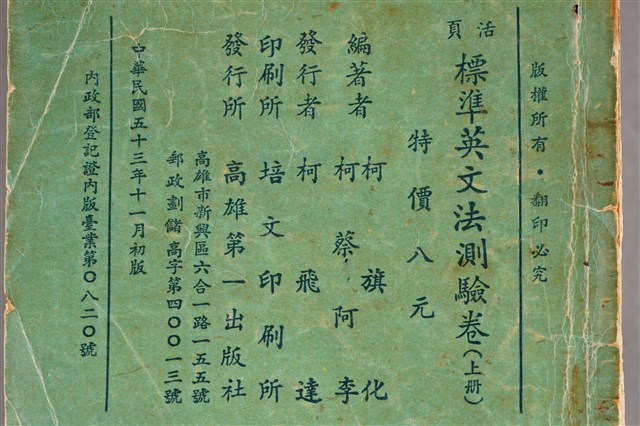 版權所有・翻印必究
活頁
標準英文法測驗卷(上册)
特價八元
編著者 柯旗化
柯蔡阿李
發行者 柯飛達
印刷所 培文印刷所
發行所 高雄第一出版社
高雄市新興區六合一路一五五號
郵政劃儲高字第四〇〇一三號
中華民國五十三年十一月初版
內政部登記證內版臺業第〇八二〇號